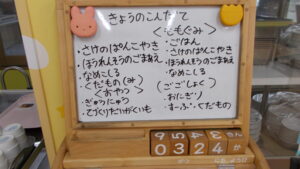 きょうのこんだて
・さけのぱんこやき
・ほうれんそうのごまあえ
・なめこしる
＜くだもの(み)
＜おやつ＞
・ぎゅうにゅう
・てづくりだいがくいも
＜ももぐみ＞
・ごはん
・さけのぱんこやき
・ほうれんそうのごまあえ
・なめこしる
＜ごごしょく＞
・おにぎり
・すーぷ・くだもの
0 3 2 4